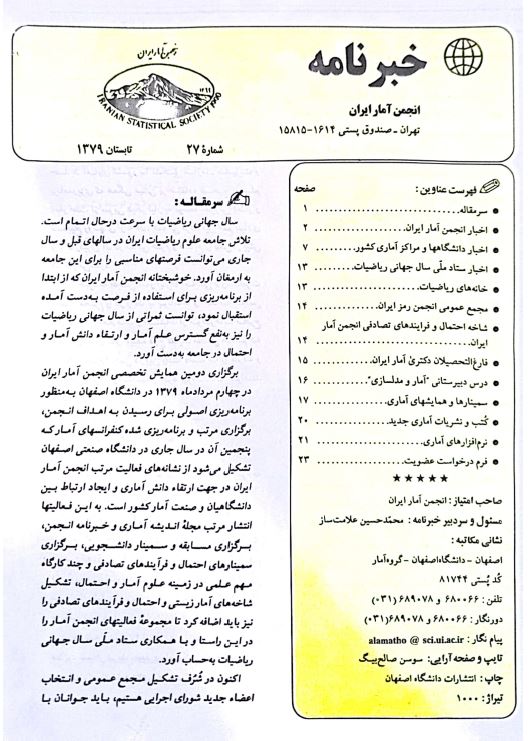 خبرنامه
انجمن آمار ایران
تهران ـ صندوق پستی ۱۶۱۴-۱۵۸۱۵
انجمن آمار ایران
IRANIAN STATISTICAL SOCIETY 1990
شمارهٔ ۲۷
تابستان ۱۳۷۹
فهرست عناوین : صفحه
سرمقاله ........................ ۱
اخبار انجمن آمار ایران ............... ۲
اخبار دانشگاهها و مراکز آماری کشور ........ ۷
اخبار ستاد ملّی سال جهانی ریاضیات ........ ۱۳
خانه‌های ریاضیات .................. ۱۳
مجمع عمومی انجمن رمز ایران ............ ۱۴
شاخه احتمال و فرایندهای تصادفی انجمن آمار
ایران ......................... ۱۴
فارغ‌التحصیلان دکترای آمار ایران ......... ۱۵
درس دبیرستانی "آمار و مدلسازی" ......... ۱۶
سمینارها و همایشهای آماری ............ ۱۷
کُتب و نشریات آماری جدید ............. ۲۰
نرم‌افزارهای آماری ................. ۲۱
فرم درخواست عضویت ................ ۲۳
★ ★ ★ ★ ★
صاحب امتیاز : انجمن آمار ایران
مسئول و سردبیر خبرنامه : محمّدحسین علامت‌ساز
نشانی مکاتبه :
اصفهان - دانشگاه اصفهان - گروه آمار
کُد پُستی ۸۱۷۴۴
تلفن : ۶۸۰۰۶۶ و ۶۸۹۰۷۸ (۰۳۱)
دورنگار : ۶۸۰۰۶۶ و ۶۸۹۰۷۸ (۰۳۱)
پیام نگار : alamatho @ sci.ui.ac.ir
تایپ و صفحه آرایی: سوسن صالح‌بیگ
چاپ: انتشارات دانشگاه اصفهان
تیراژ: ۱۰۰۰
سرمقاله :
سال جهانی ریاضیات با سرعت درحال اتمام است.
تلاش جامعه علوم ریاضیات ایران در سالهای قبل و سال
جاری می‌توانست فرصتهای مناسبی را برای این جامعه
به ارمغان آورد. خوشبختانه انجمن آمار ایران که از ابتدا
از برنامه‌ریزی برای استفاده از فرصت به‌دست آمده
استقبال نمود، توانست ثمراتی از سال جهانی ریاضیات
را نیز به‌نفع گسترش علم آمار و ارتقاء دانش آمار و
احتمال در جامعه به‌دست آورد.
برگزاری دومین همایش تخصصی انجمن آمار ایران
در چهارم مردادماه ۱۳۷۹ در دانشگاه اصفهان به‌منظور
برنامه‌ریزی اصولی برای رسیدن به اهداف انجمن،
برگزاری مرتب و برنامه‌ریزی شده کنفرانسهای آمار که
پنجمین آن در سال جاری در دانشگاه صنعتی اصفهان
تشکیل می‌شود از نشانه‌های فعالیت مرتب انجمن آمار
ایران در جهت ارتقاء دانش آماری و ایجاد ارتباط بین
دانشگاهیان و صنعت آمار کشور است. به این فعالیتها
انتشار مرتب مجلهٔ اندیشه آماری و خبرنامه انجمن،
برگزاری مسابقه و سمینار دانشجویی، برگزاری
سمینارهای احتمال و فرآیندهای تصادفی و چند کارگاه
مهم علمی در زمینه علوم آمار و احتمال، تشکیل
شاخه‌های آمار زیستی و احتمال و فرآیندهای تصادفی را
نیز باید اضافه کرد تا مجموعهٔ فعالیتهای انجمن آمار را
در این راستا و با همکاری ستاد ملّی سال جهانی
ریاضیات به‌حساب آورد.
اکنون در شُرُف تشکیل مجمع عمومی و انتخاب
اعضاء جدید شورای اجرایی هستیم، باید جوانان با